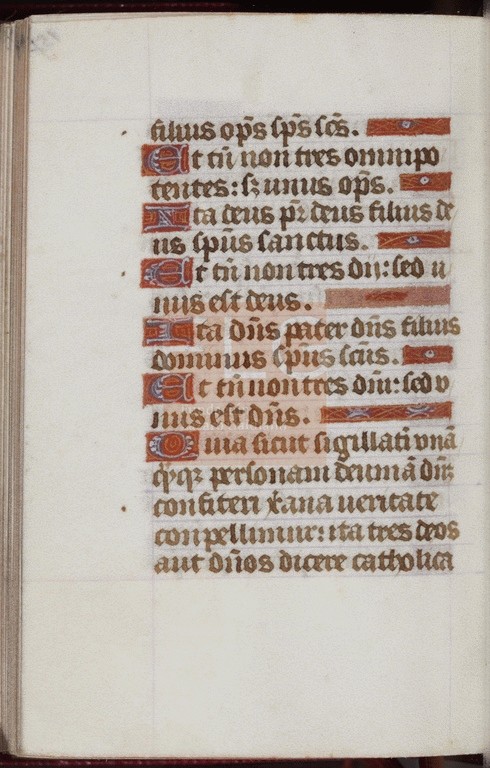 filius op̄s sp̄s sc̄s.
Et tn̄ non tres omnipo
tentes: sꝫ unus op̄s.
Ita deus pr̄ deus filius de
us sp̄us sanctus.
Et tn̄ non tres dii: sed u
nus est deus.
Ita dn̄s pater dn̄s filius
dominus sp̄us sc̄us.
Et tn̄ non tres dn̄i: sed v
nus est dn̄s.
Quia sicut sigillatī vnā
q̄ꝫqꝫ personam deum ā dn̄ꝫ
confiteri x̄ana ueritate
conpellimur: ita tres deos
aut dn̄os dicere catholica